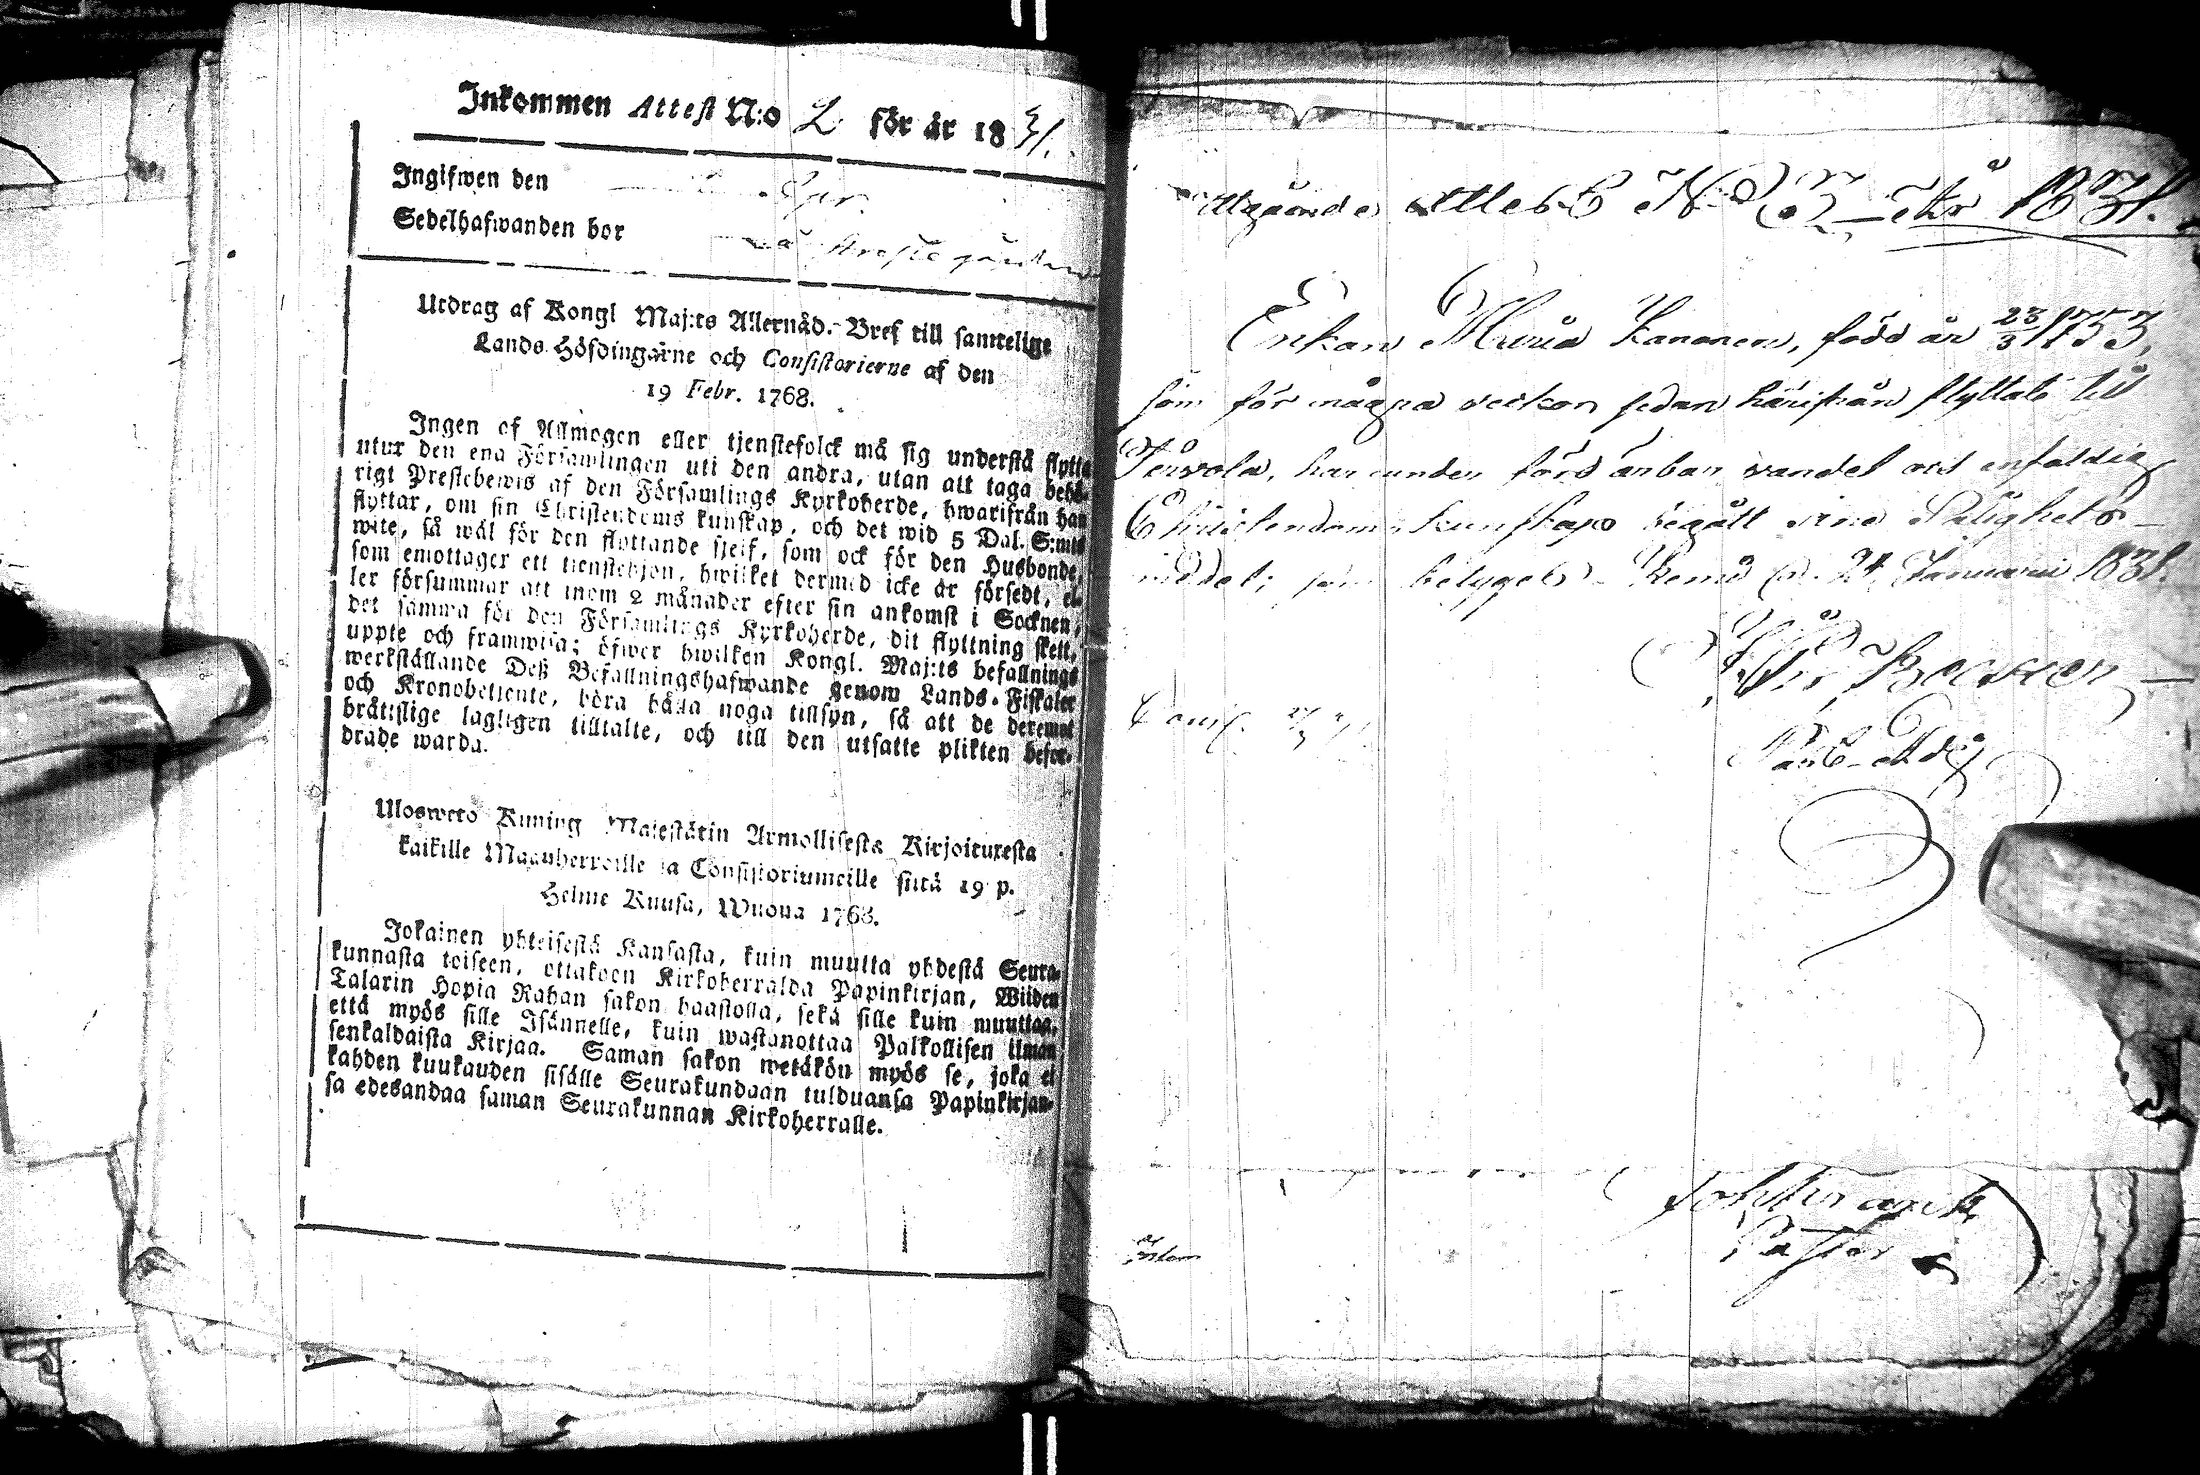 Inkommen Attest N:o 2 för år 1831.
Ingifwen den Apr.
Sedelhafwanden bor
Utdrag af Kongl Maj:ts Allernåd. Bref till samtelige
Lands Höfdingarne och Consistorierne af den
19 Febr. 1768.
Ingen of Allmogen eller tjenstefolck må sig understå flytta
utur den ena Församlingen uti den andra, utan att taga behö-
rigt Prestebewis af den Församlings Kyrkoherde, hwarifrån han
flyttar, om sin Christendoms kunskap, och det wid 5 Dal. S:mts
wite, så wäl för den flyttande sjelf, som ock för den Husbonde,
som emottager ett tienstehjon, hwilket dermed icke är försedt, el-
ler försummar att inom 2 månader efter sin ankomst i Socknen,
det samma för den Församlings Kyrkoherde, dit flyttning skett,
uppte och framwisa; öfwer hwilken Kongl. Maj:ts befallnings
werkställande Deß Befallningshafwande genom Lands-Fiskaler
och Kronobetjente, böra hålla noga tillsyn, så att de deremot
bråttslige lagligen tilltalte, och till den utsatte plikten befor-
drade warda.
Ulosweto Kuning Majestätin Armollisesta Kirjoituxesta
kaikille Maanherroille ja Consistoriumeille siitä 19 p.
Helme Kuusa, Wuona 1768.
Jokainen yhteisestä Kansasta, kuin muutta yhdestä Seura-
kunnasta toiseen, ottakoen Kirkoherralda Papinkirjan, Wiiden
Talarin Hopia Rahan sakon haastolla, sekä sille kuin muuttaa,
että myös sille Isännelle, kuin wastanottaa Palkollisen ilman
senkaldaista Kirjaa. Saman sakon wetäkön myös se, joka ei
kahden kuukauden sisälle Seurakundaan tulduansa Papinkirjan-
sa edesandaa saman Seurakunnan Kirkoherralle.
Utgående Attest N:o 2 År 1831.
Enkan Maria Kananen, född år 23/3 1753,
som för några veckor sedan härifrån flyttat til
Tervola, har under förd ärbar vandel och enfaldig
Christendoms kunskap begått sine Salighets-
medel; som betygets. Kemi d. 24 Januarii 1831.
Past. Adj
Pastor